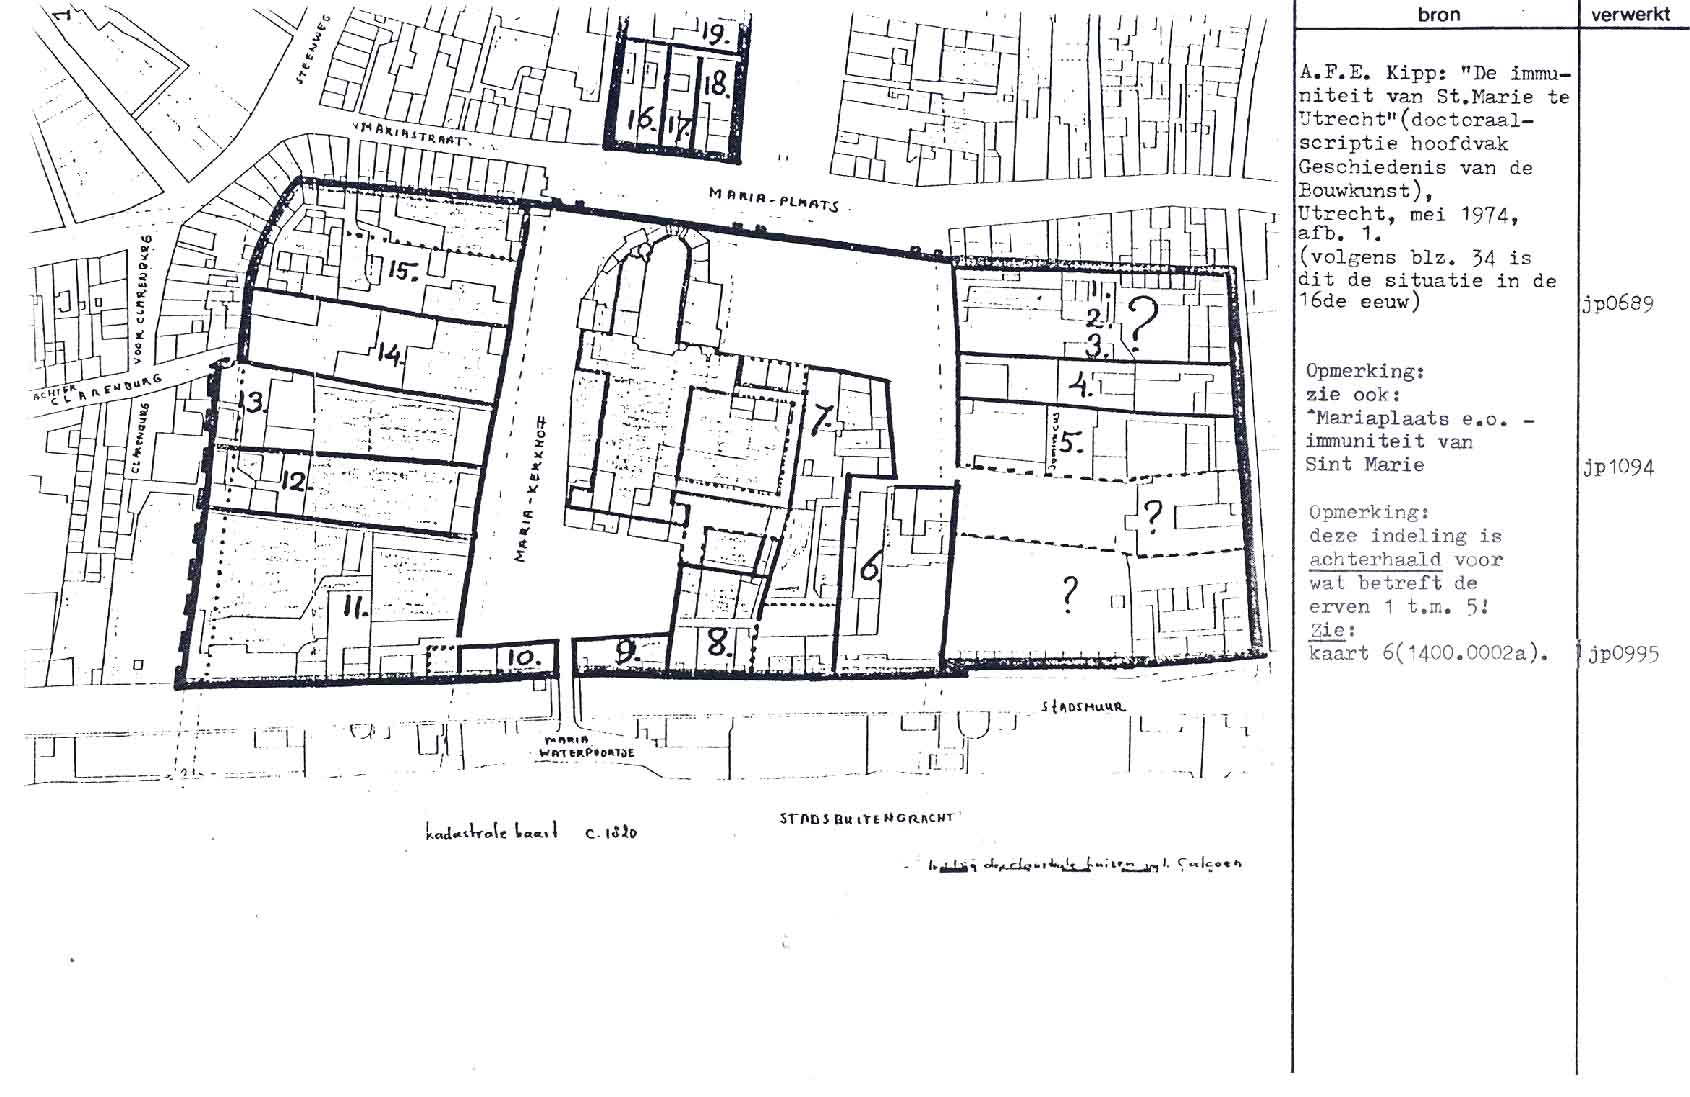 bron
verwerkt
A.F.E. Kipp: "De immu-
niteit van St.Marie te
Utrecht"(doctoraal-
scriptie hoofdvak
Geschiedenis van de
Bouwkunst),
Utrecht, mei 1974,
afb. 1.
(volgens blz. 34 is
dit de situatie in de
16de eeuw)
jp0689
Opmerking:
zie ook:
"Mariaplaats e.o. -
immuniteit van
Sint Marie
jp1094
Opmerking:
deze indeling is
achterhaald voor
wat betreft de
erven 1 t.m. 5!
Zie:
kaart 6(1400.0002a).
jp0995
1
STEENWEG
19.
18.
16.
17.
MARIASTRAAT
MARIA-PLAATS
15.
14.
VOOR CLARENBURG
ACHTER
CLARENBURG
CLARENBURG
13.
12.
11.
MARIA-KERKHOF
10.
9.
8.
7.
6
1.
2.
3.
?
4.
5.
?
?
STADSMUUR
MARIA
WATERPOORTJE
STADSBUITENGRACHT
kadastrale kaart c. 1820